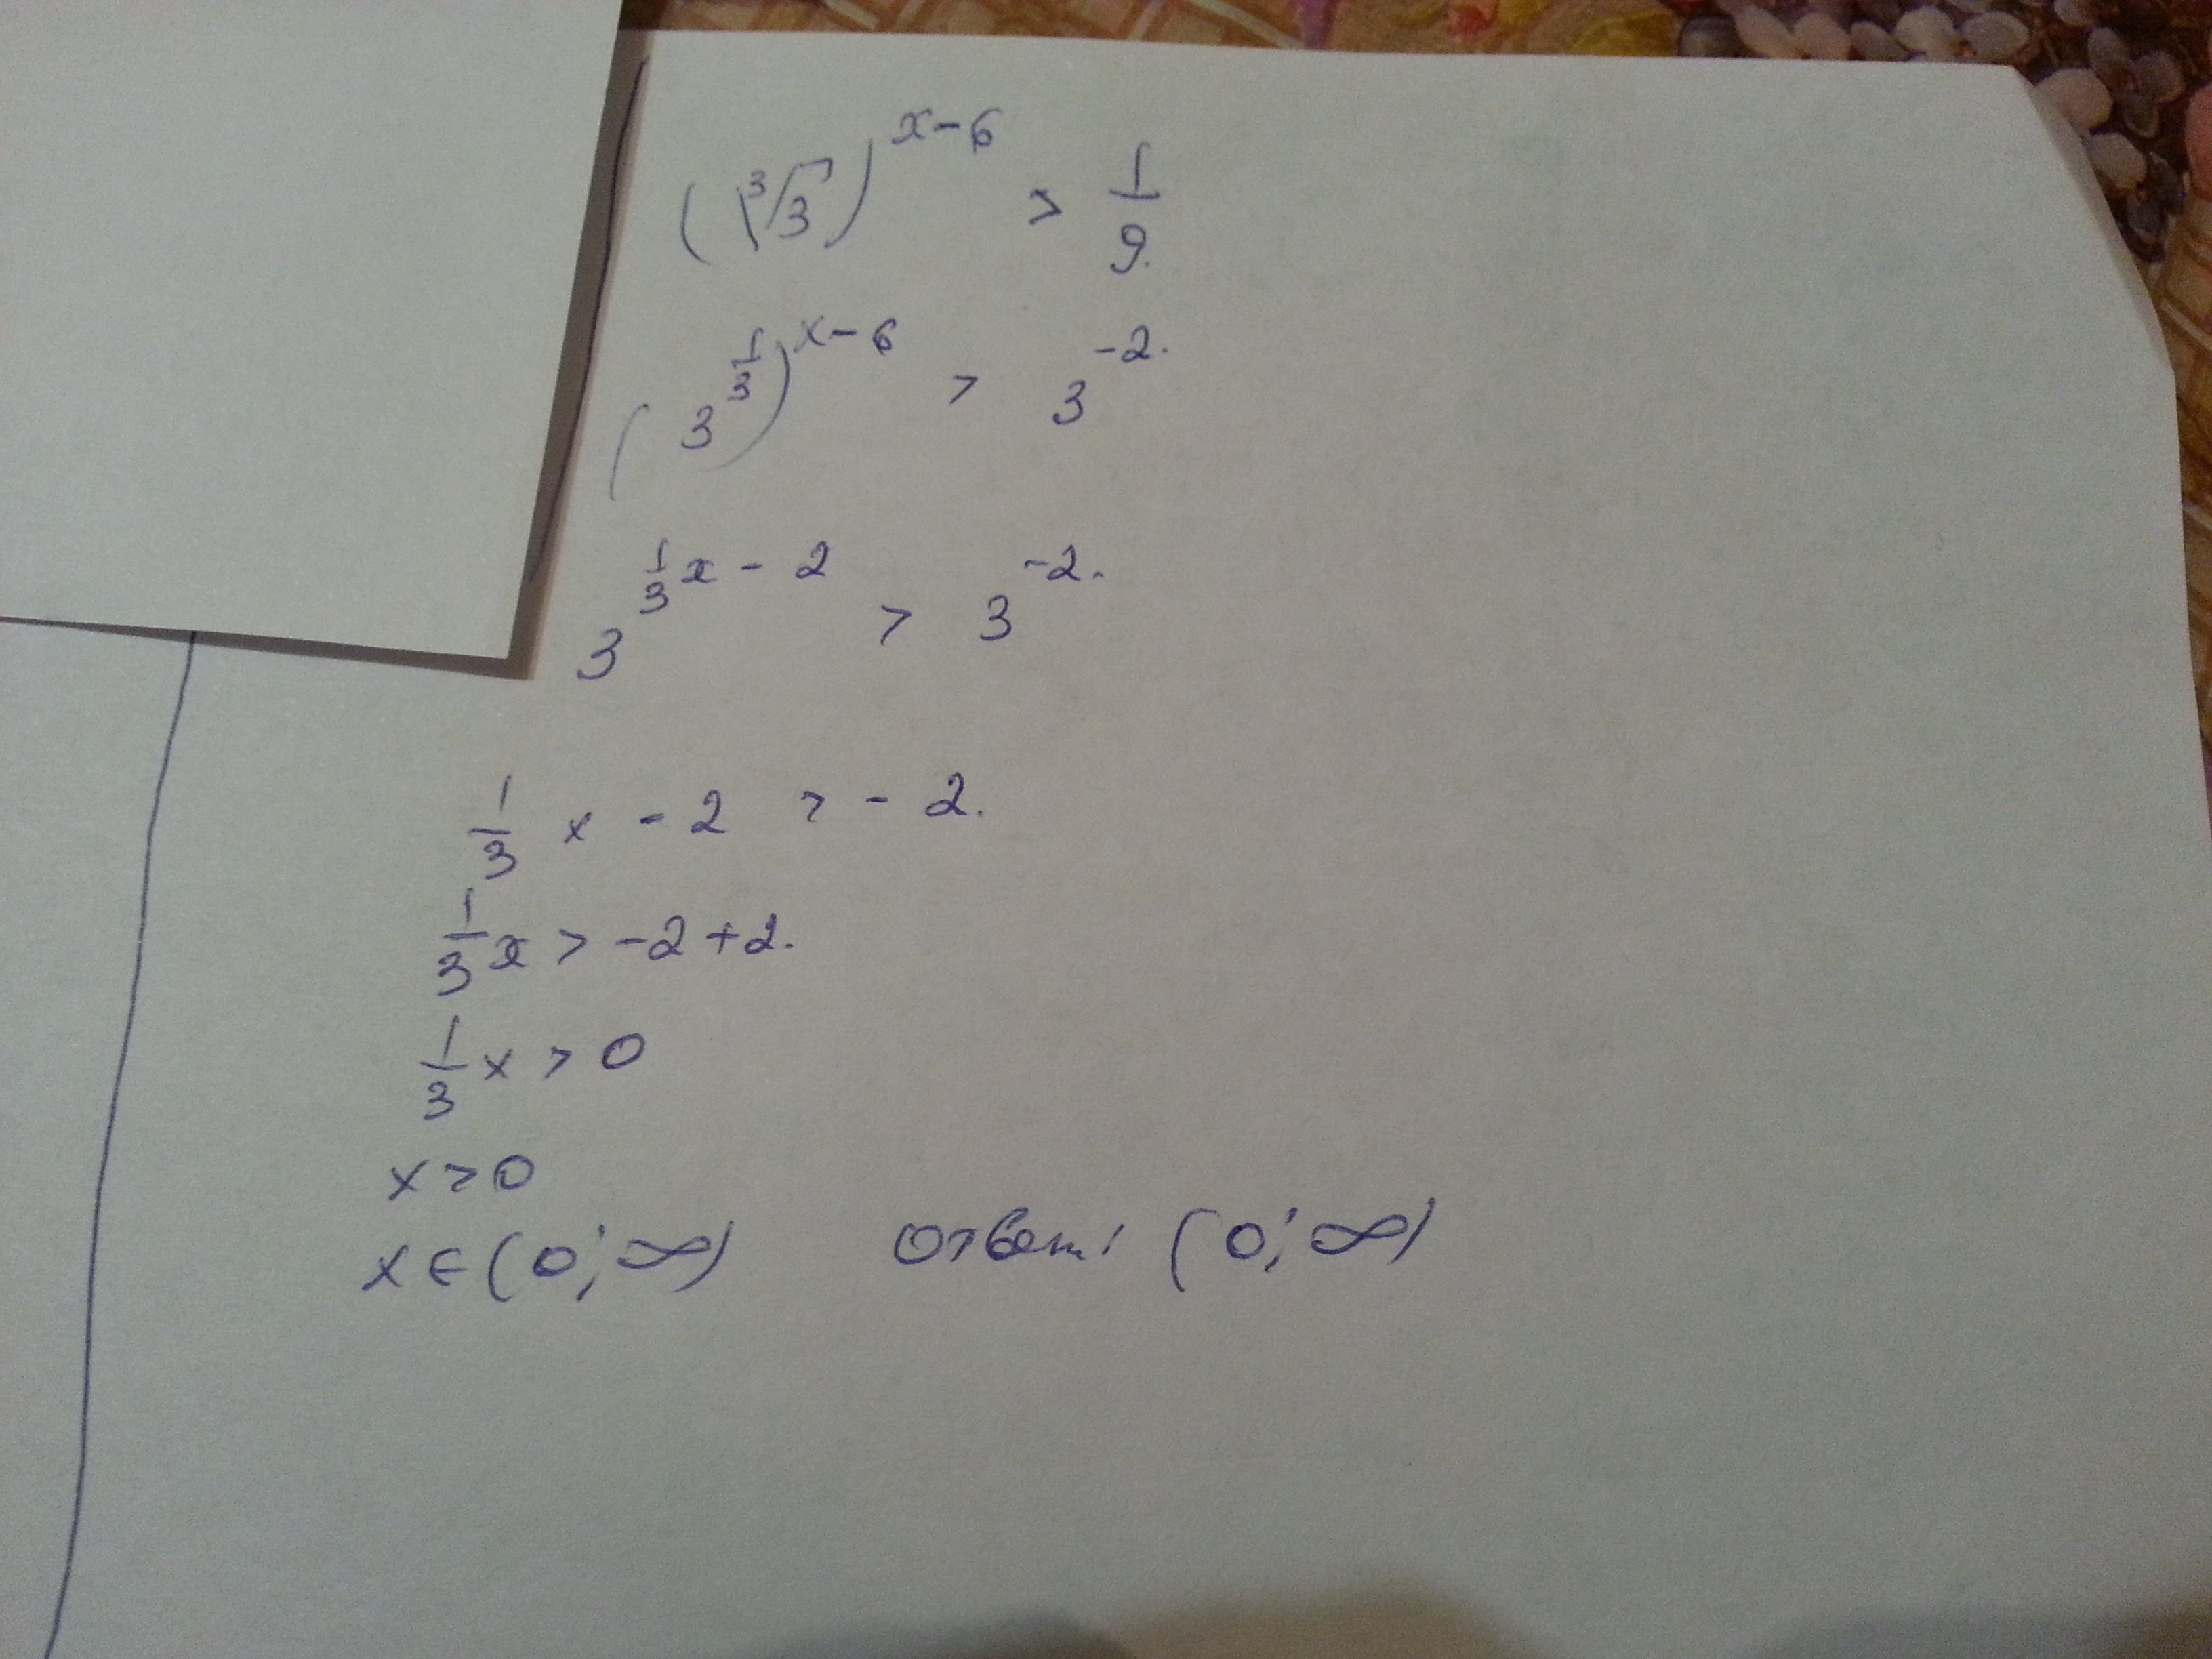 (∛3)^(x-6) > 1/9.
(3^(1/3))^(x-6) > 3^(-2).
3^(1/3 x - 2) > 3^(-2).
1/3 x - 2 > - 2.
1/3 x > -2+2.
1/3 x > 0
x>0
x∈(0;∞) Ответ: (0;∞)